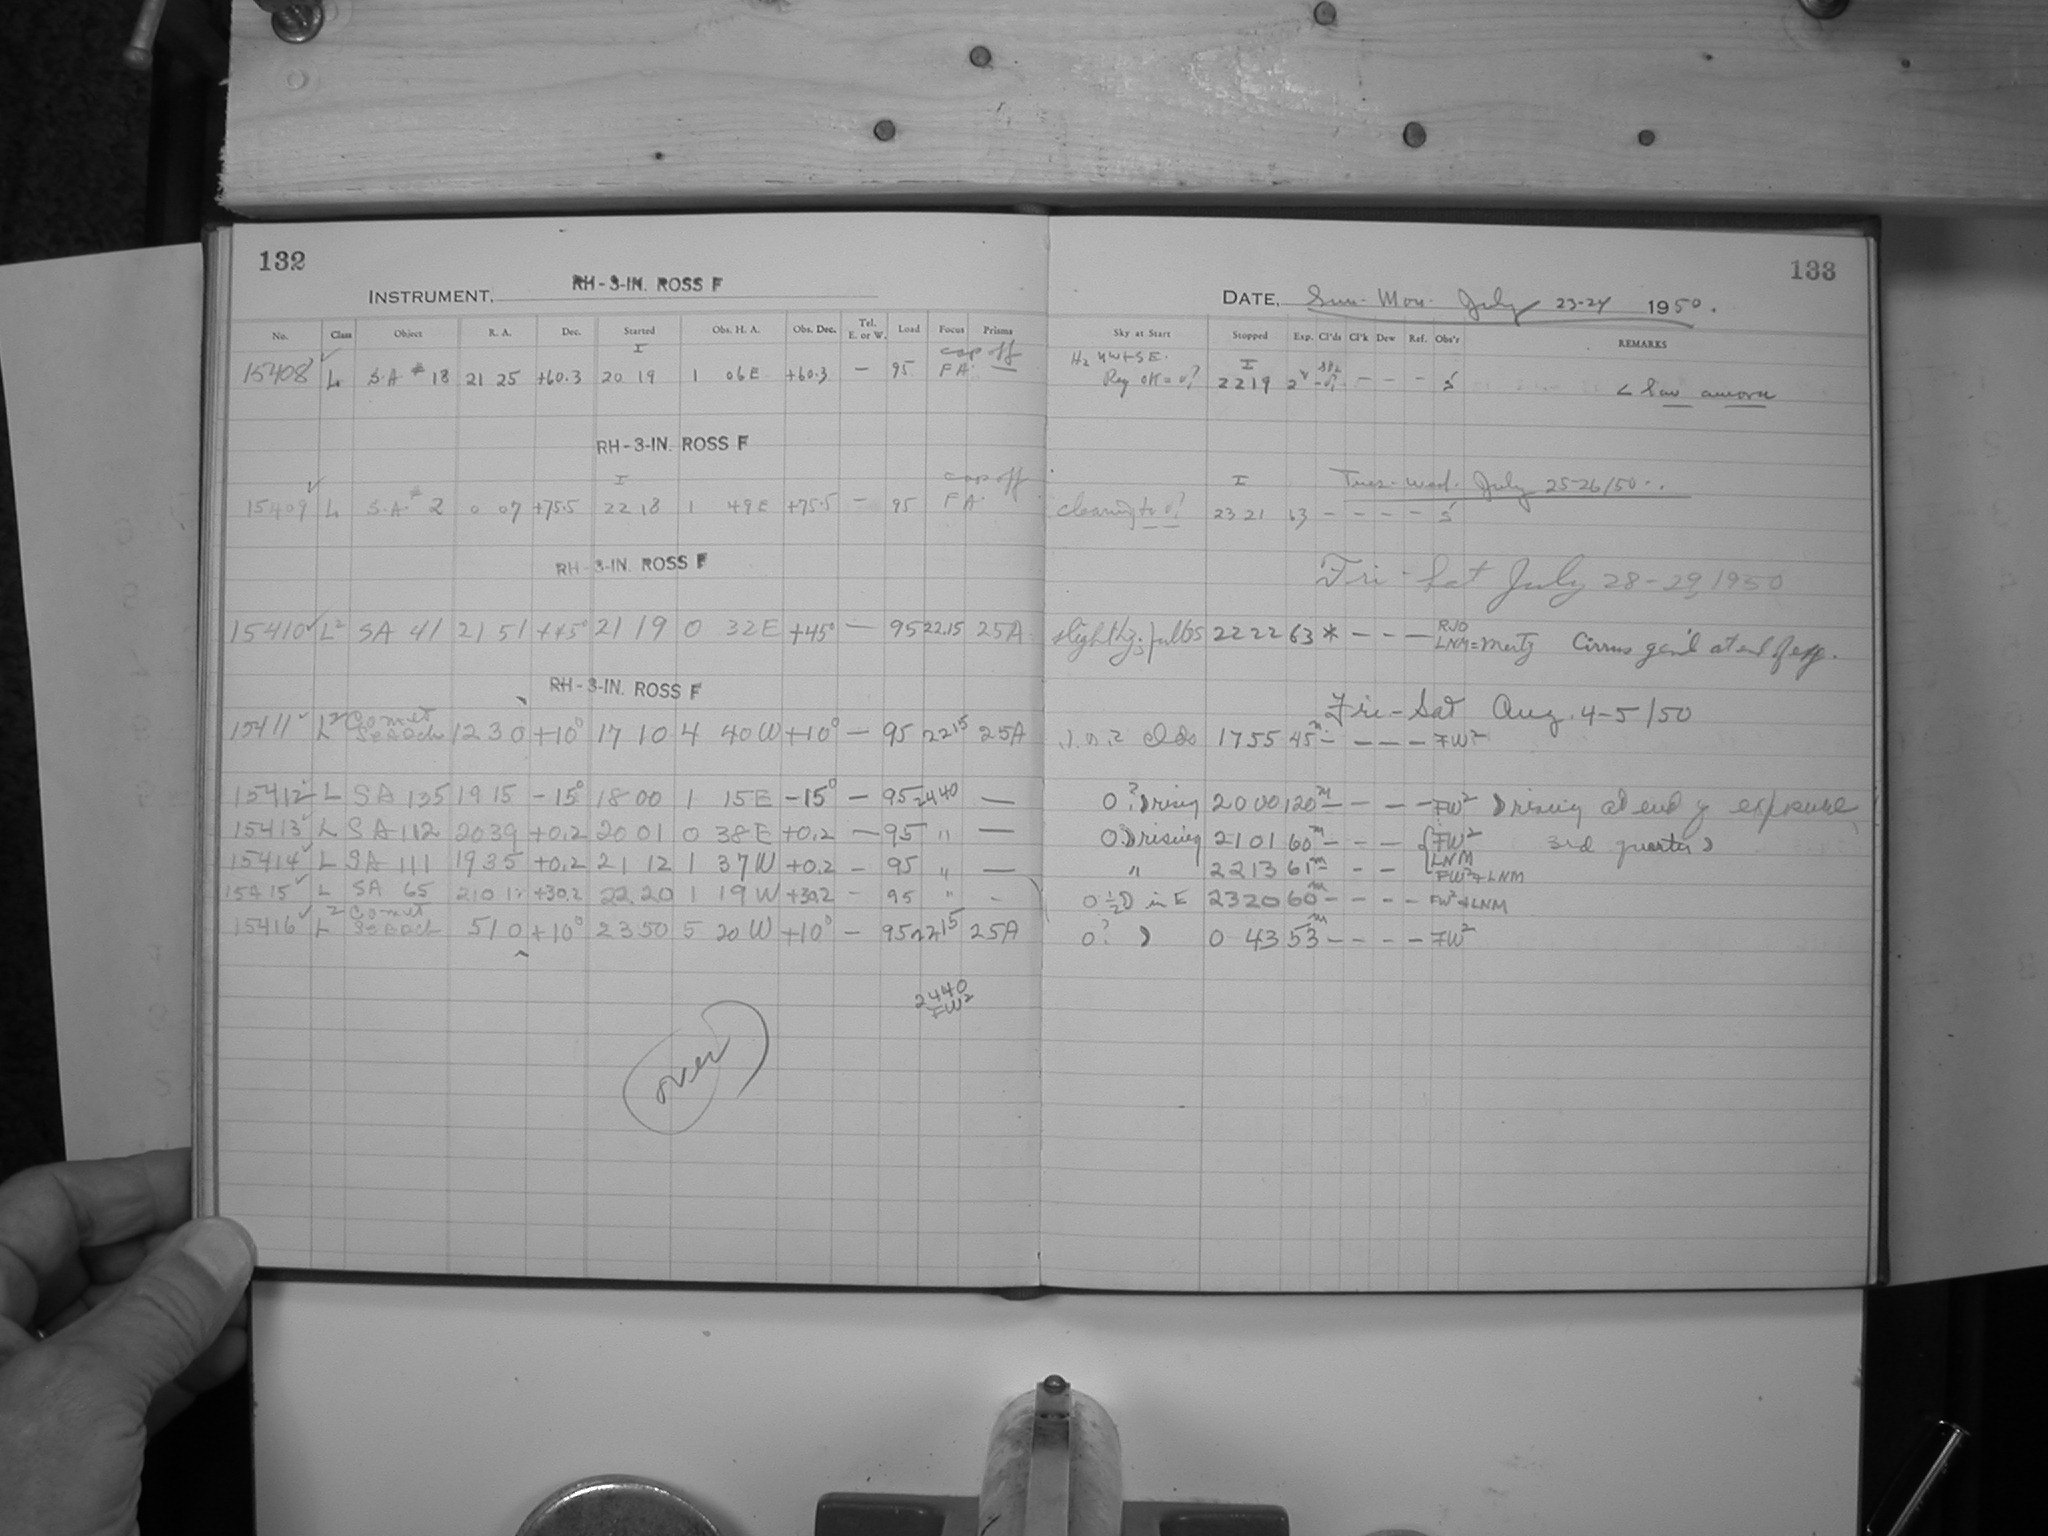 132
INSTRUMENT, RH-3-IN. ROSS F
No. Class Object R. A. Dec. Started Obs. H. A. Obs. Dec. Tel. E. or W. Load Focus Prisms
I cap off
15408 ✓ L S.A # 18 21 25 +60.3 20 19 1 06E +60.3 — 95 FA
RH-3-IN. ROSS F
I cap off
15409 ✓ L S.A. # 2 0 07 +75.5 22 18 1 49E +75.5 — 95 FA
RH-3-IN. ROSS F
15410 ✓ L² SA 41 21 51 +45° 21 19 0 32E +45° — 95 22.15 25A
RH-3-IN. ROSS F
15411 ✓ L² Comet Search 12 30 +10° 17 10 4 40W +10° — 95 2215 25A
15412 ✓ L SA 135 19 15 -15° 18 00 1 15E -15° — 95 2440 —
15413 ✓ L SA 112 20 39 +0.2 20 01 0 38E +0.2 — 95 " —
15414 ✓ L SA 111 19 35 +0.2 21 12 1 37W +0.2 — 95 " —
15415 ✓ L SA 65 +30.2 22 20 1 19W +30.2 — 95 " -
15416 ✓ L² Comet Search 5/0 +10° 23 50 5 20W +10° — 95 2215 25A
2440
FW²
over
133
DATE, Sun-Mon- July 23-24 1950.
Sky at Start Stopped Exp. Cl'ds Cl'k Dew Ref. Obs'r REMARKS
H₂ NW+SE. I
Reg OK = 0? 22 19 - - - Low aurora
I Tues-Wed. July 25-26/50..
clearing to 0? 23 21 63 - - - -
Fri-Sat July 28-29, 1950
slightly 22 22 63 * - - - RJO
LNM=Mertz Cirrus gen'l at end of exp.
Fri-Sat Aug. 4-5/50
17 55 45m - - - - FW²
0? rising 20 00 120m - - - - FW² rising at end of exposure
0? rising 21 01 60m - - - FW² 3rd quarter
LNM
" 22 13 61m - - FW²+LNM
0 ½ in E 23 20 60m - - - - FW²+LNM
0? 0 43 53m - - - - FW²